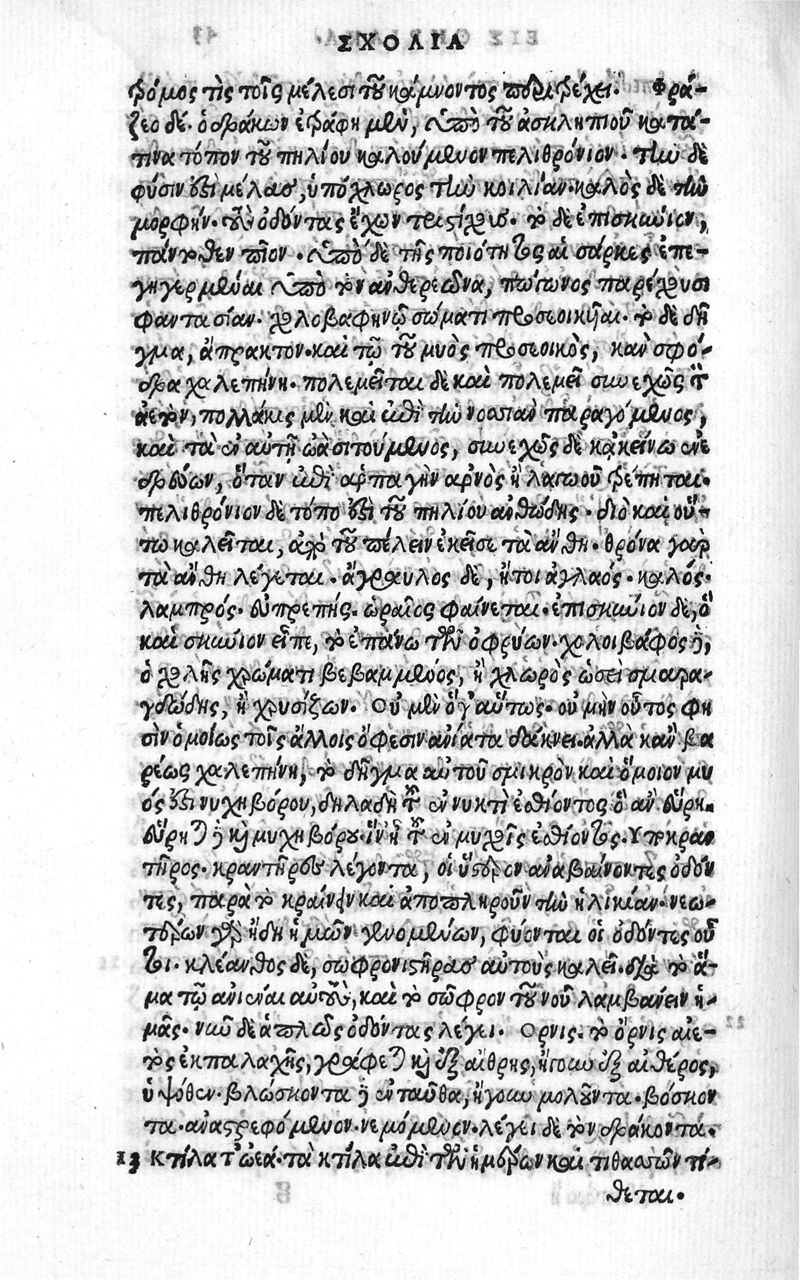 ΣΧΟΛΙΑ
βόμος τὶς τοῖς μέλεσι τοῦ κάμνοντος περιβέχει. Φρά-
ζεο δέ. ὁ δράκων ἐβάφη μὲν, ὑπὸ τοῦ ἀσκληπιοῦ κατά-
τινα τόπον τοῦ πηλίου καλούμενον πελιθρόνιον. τὴν δὲ
φύσιν ἐστὶ μέλας, ὑπόχλωρος τὴν κοιλίαν. καλὸς δὲ τὴν
μορφήν. τοὺς ὀδόντας ἔχων τριστίχους. τὸ δὲ ἐπισκύνιον,
πάντοθεν πῖον. ὑπὸ δὲ τῆς ποιότητος αἱ σάρκες ἐπε-
γηγερμέναι ὑπὸ τὸν ἀνθερεῶνα, πώγωνος παρέχουσι
φαντασίαν. χολοβαφηνῷ σώματι προσεοικυῖαι. τὸ δὲ δῆ
γμα, ἄπρακτον. καὶ τῷ τοῦ μυὸς προσεοικὸς, κἂν σφό-
δρα χαλεπήνῃ. πολεμεῖται δὲ καὶ πολεμεῖ συνεχῶς τὸν
ἀετὸν, πολλάκις μὲν καὶ ἐπὶ τὴν νοσσιὰν παραγόμενος,
καὶ τὰ ἐν αὐτῇ ὠὰ σιτούμενος, συνεχῶς δὲ κἀκείνῳ ἐνε
δρεύων, ὅταν ἐπὶ ἁρπαγὴν ἀρνὸς ἢ λαγωοῦ τρέπηται.
πελιθρόνιον δὲ τόπο ἐστὶ τοῦ πηλίου ἀνθώδης. διὸ καὶ οὕ-
τω καλεῖται, ἀπὸ τοῦ πέλειν ἐκεῖσε τὰ ἄνθη. θρόνα γὰρ
τὰ ἄνθη λέγεται. ἄγραυλος δὲ, ἤτοι ἀγλαός. καλός.
λαμπρός. εὐπρεπής. ὡραῖος φαίνεται. ἐπισκύνιον δὲ, ὃ
καὶ σκύνιον εἶπε, τὸ ἐπάνω τῶν ὀφρύων. χολοιβάφος δὲ,
ὁ χολῆς χρώματι βεβαμμένος, ἢ χλωρὸς ὡσεὶ σμαρα-
γδώδης, ἢ χρυσίζων. Οὐ μὲν ὅγ' αὕτως. οὐ μὴν οὗτος φη
σὶν ὁμοίως τοῖς ἄλλοις ὄφεσιν ἀνίατα δάκνει. ἀλλὰ κἂν βα
ρέως χαλεπήνῃ, τὸ δῆγμα αὐτοῦ σμικρὸν καὶ ὅμοιον μυ
ός ἐστι νυχηβόρου, δηλαδὴ τοῦ ἐν νυκτὶ ἐσθίοντος ὃ ἂν εὕρῃ.
εὕρηται δὲ καὶ μυχηβόρου. ἵν' ᾖ τοῦ ἐν μυχοῖς ἐσθίοντος. Υπὸ κραν
τῆρος. κραντῆρες λέγονται, οἱ ὕστερον ἀναβαίνοντες ὀδόν
τες, παρὰ τὸ κραίνειν καὶ ἀποπληροῦν τὴν ἡλικίαν. νεω-
τέρων γὰρ ἤδη ἡμῶν γενομένων, φύονται οἱ ὀδόντες οὗ
τοι. κλέανθος δὲ, σωφρονιστῆρας αὐτοὺς καλεῖ. διὰ τὸ ἅ-
μα τῷ ἀνιέναι αὐτοὺς, καὶ τὸ σῶφρον τοῦ νοῦ λαμβάνειν ἡ-
μᾶς. νῦν δὲ ἁπλῶς ὀδόντας λέγει. Ορνις. τὸ ὄρνις αἰε-
τὸς ἐκ παλαχῆς, γράφεται καὶ ἐξ αἴθρης, ἤγουν ἐξ αἰθέρος,
ὑψόθεν. βλώσκοντα δὲ ἐνταῦθα, ἤγουν μολοῦντα. βόσκον
τα. ἀναστρεφόμενον. νεμόμενον. λέγει δὲ τὸν δράκοντα.
13 Κτίλα τ' ὠεά. τὰ κτίλα ἐπὶ τῶν ἡμέρων καὶ τιθασσῶν τί-
θεται.